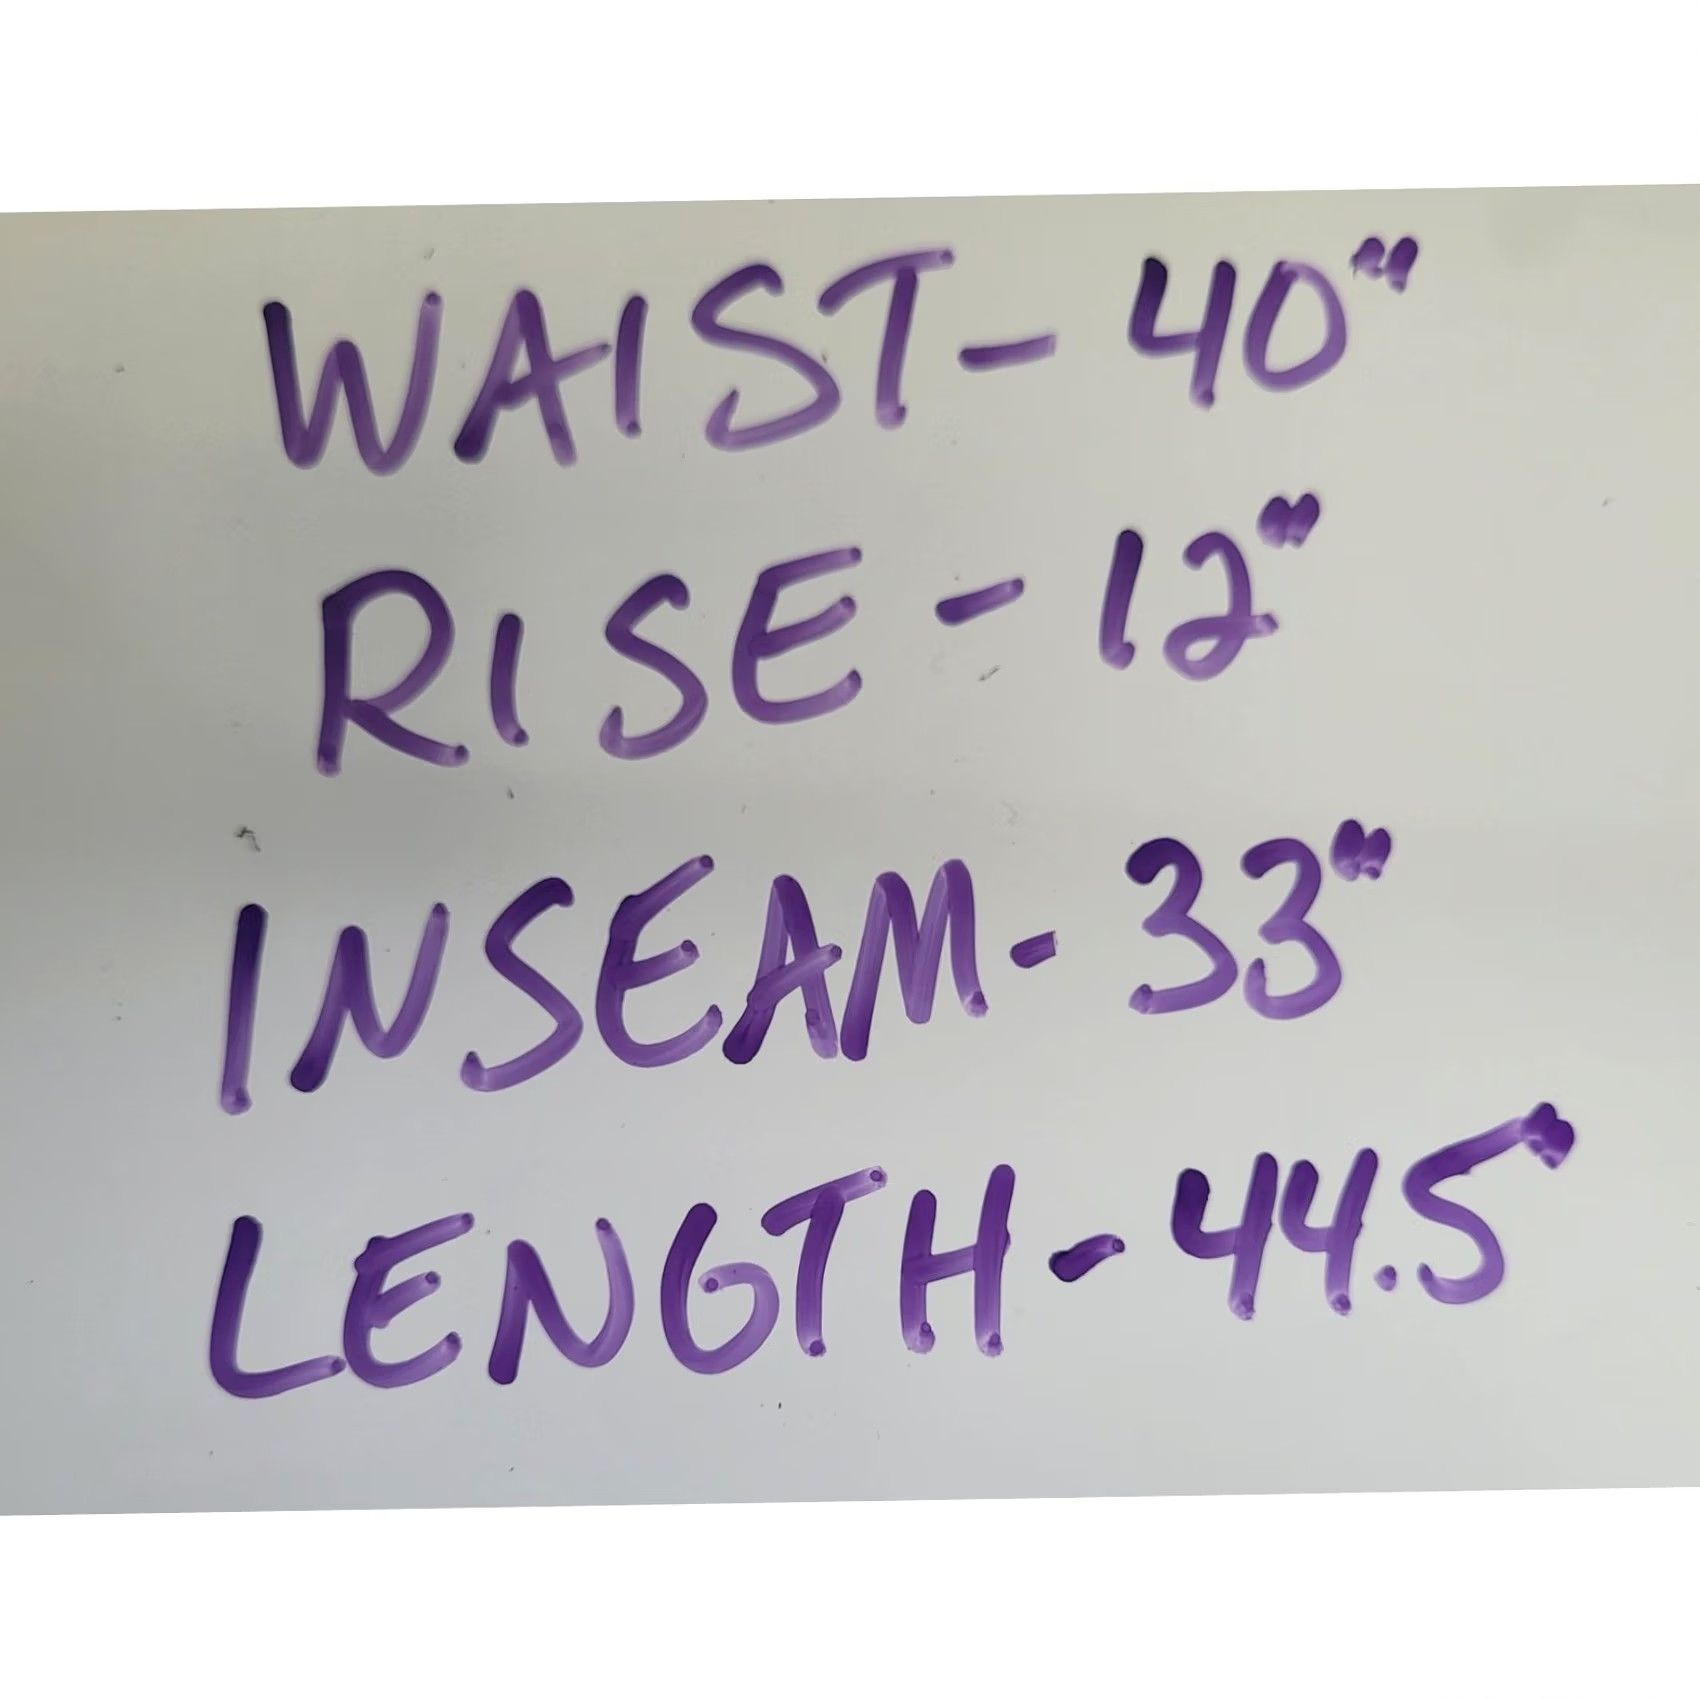 WAIST - 40"
RISE - 12"
INSEAM - 33"
LENGTH - 44.5"